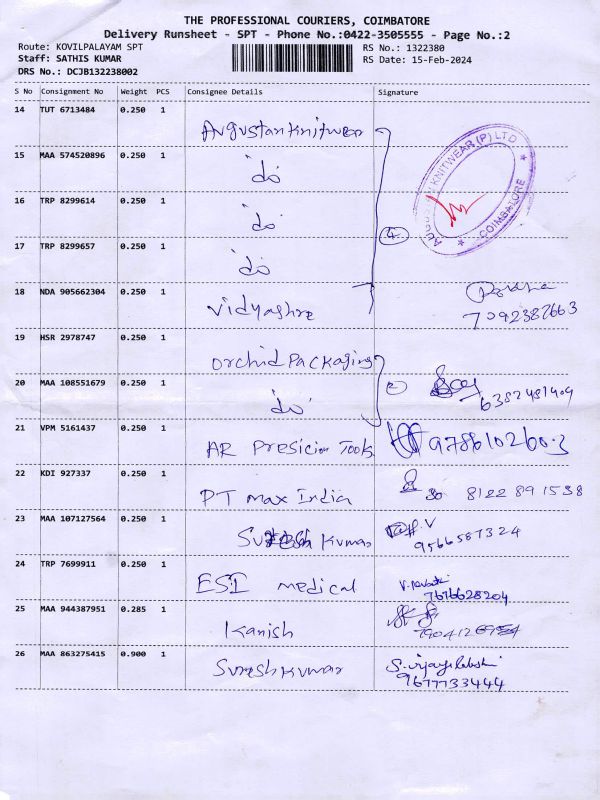 THE PROFESSIONAL COURIERS, COIMBATORE
Delivery Runsheet - SPT - Phone No.:0422-3505555 - Page No.:2
Route: KOVILPALAYAM SPT RS No.: 1322380
Staff: SATHIS KUMAR RS Date: 15-Feb-2024
DRS No.: DCJB132238002
S No Consignment No Weight PCS Consignee Details Signature
14 TUT 6713484 0.250 1 Augustan Knitwear
AUGUSTAN KNITWEAR (P) LTD
COIMBATORE
15 MAA 574520896 0.250 1 do
16 TRP 8299614 0.250 1 do
4
17 TRP 8299657 0.250 1 do
18 NDA 905662304 0.250 1 Vidyashre
7092382663
19 HSR 2978747 0.250 1 Orchid Packaging
20 MAA 108551679 0.250 1 do 2
6382481409
21 VPM 5161437 0.250 1 AR Presicion Tools 9786102603
22 KDI 927337 0.250 1 PT max India 8122891538
23 MAA 107127564 0.250 1 Suresh Kumar
9566587324
24 TRP 7699911 0.250 1 ESI medical
7676628204
25 MAA 944387951 0.285 1 Kanish
26 MAA 863275415 0.900 1 Sureshkumar S. Vijayalakshi
9677733444